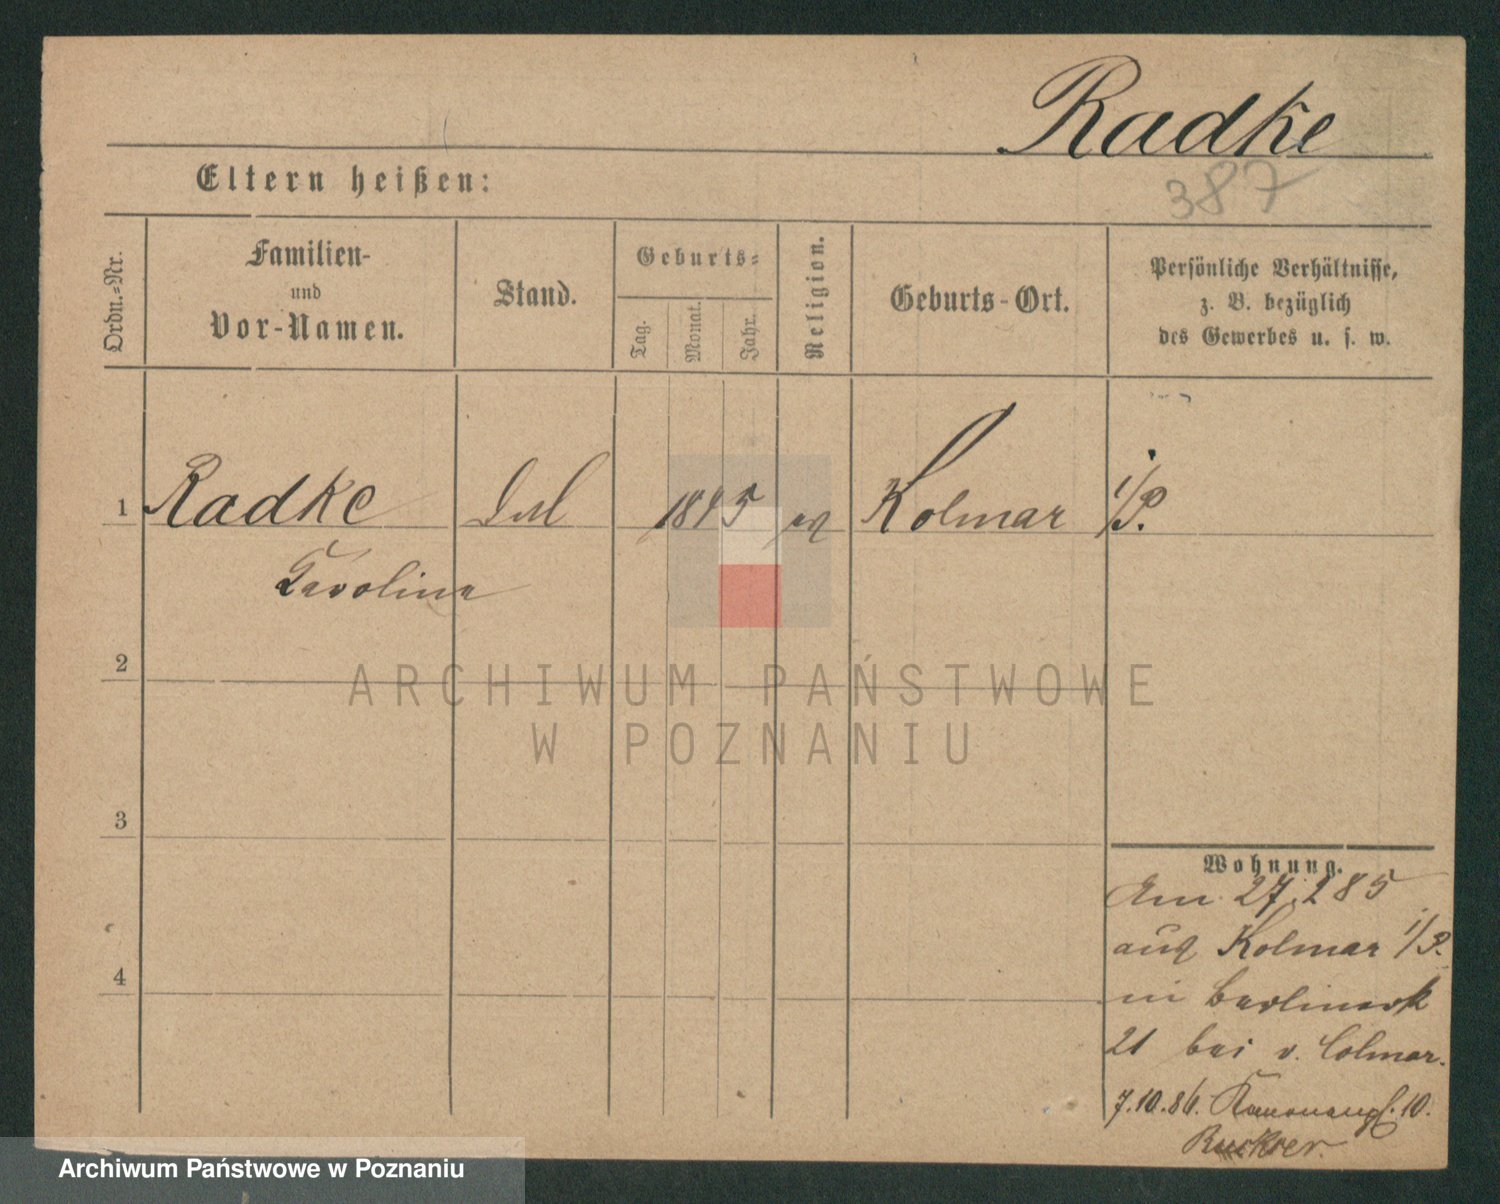 Radke
387
Eltern heißen:
Ordn.-Nr.
Familien-
und
Vor-Namen.
Stand.
Geburts-
Tag.
Monat.
Jahr.
Religion.
Geburts-Ort.
Persönliche Verhältnisse,
z. B. bezüglich
des Gewerbes u. s. w.
1 Radke 1845 Kolmar i/P.
Karoline
2
ARCHIWUM PAŃSTWOWE
W POZNANIU
3
4
Wohnung.
Am 27.2 85
aus Kolmar i/P.
in
21 bei v. Colmar.
7.10.86. 10.
Archiwum Państwowe w Poznaniu